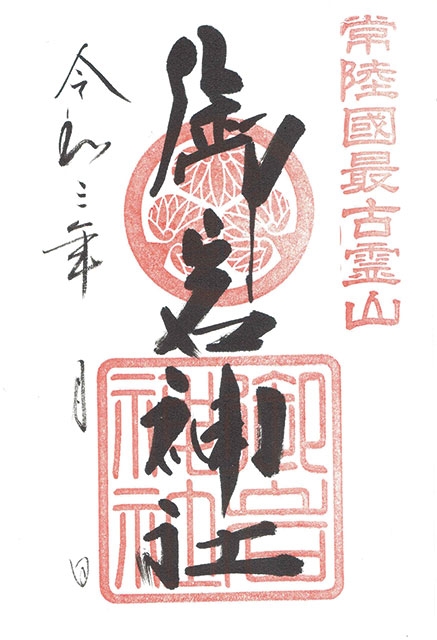 常陸國最古霊山
御岩神社
御岩神社
令和三年 月 日